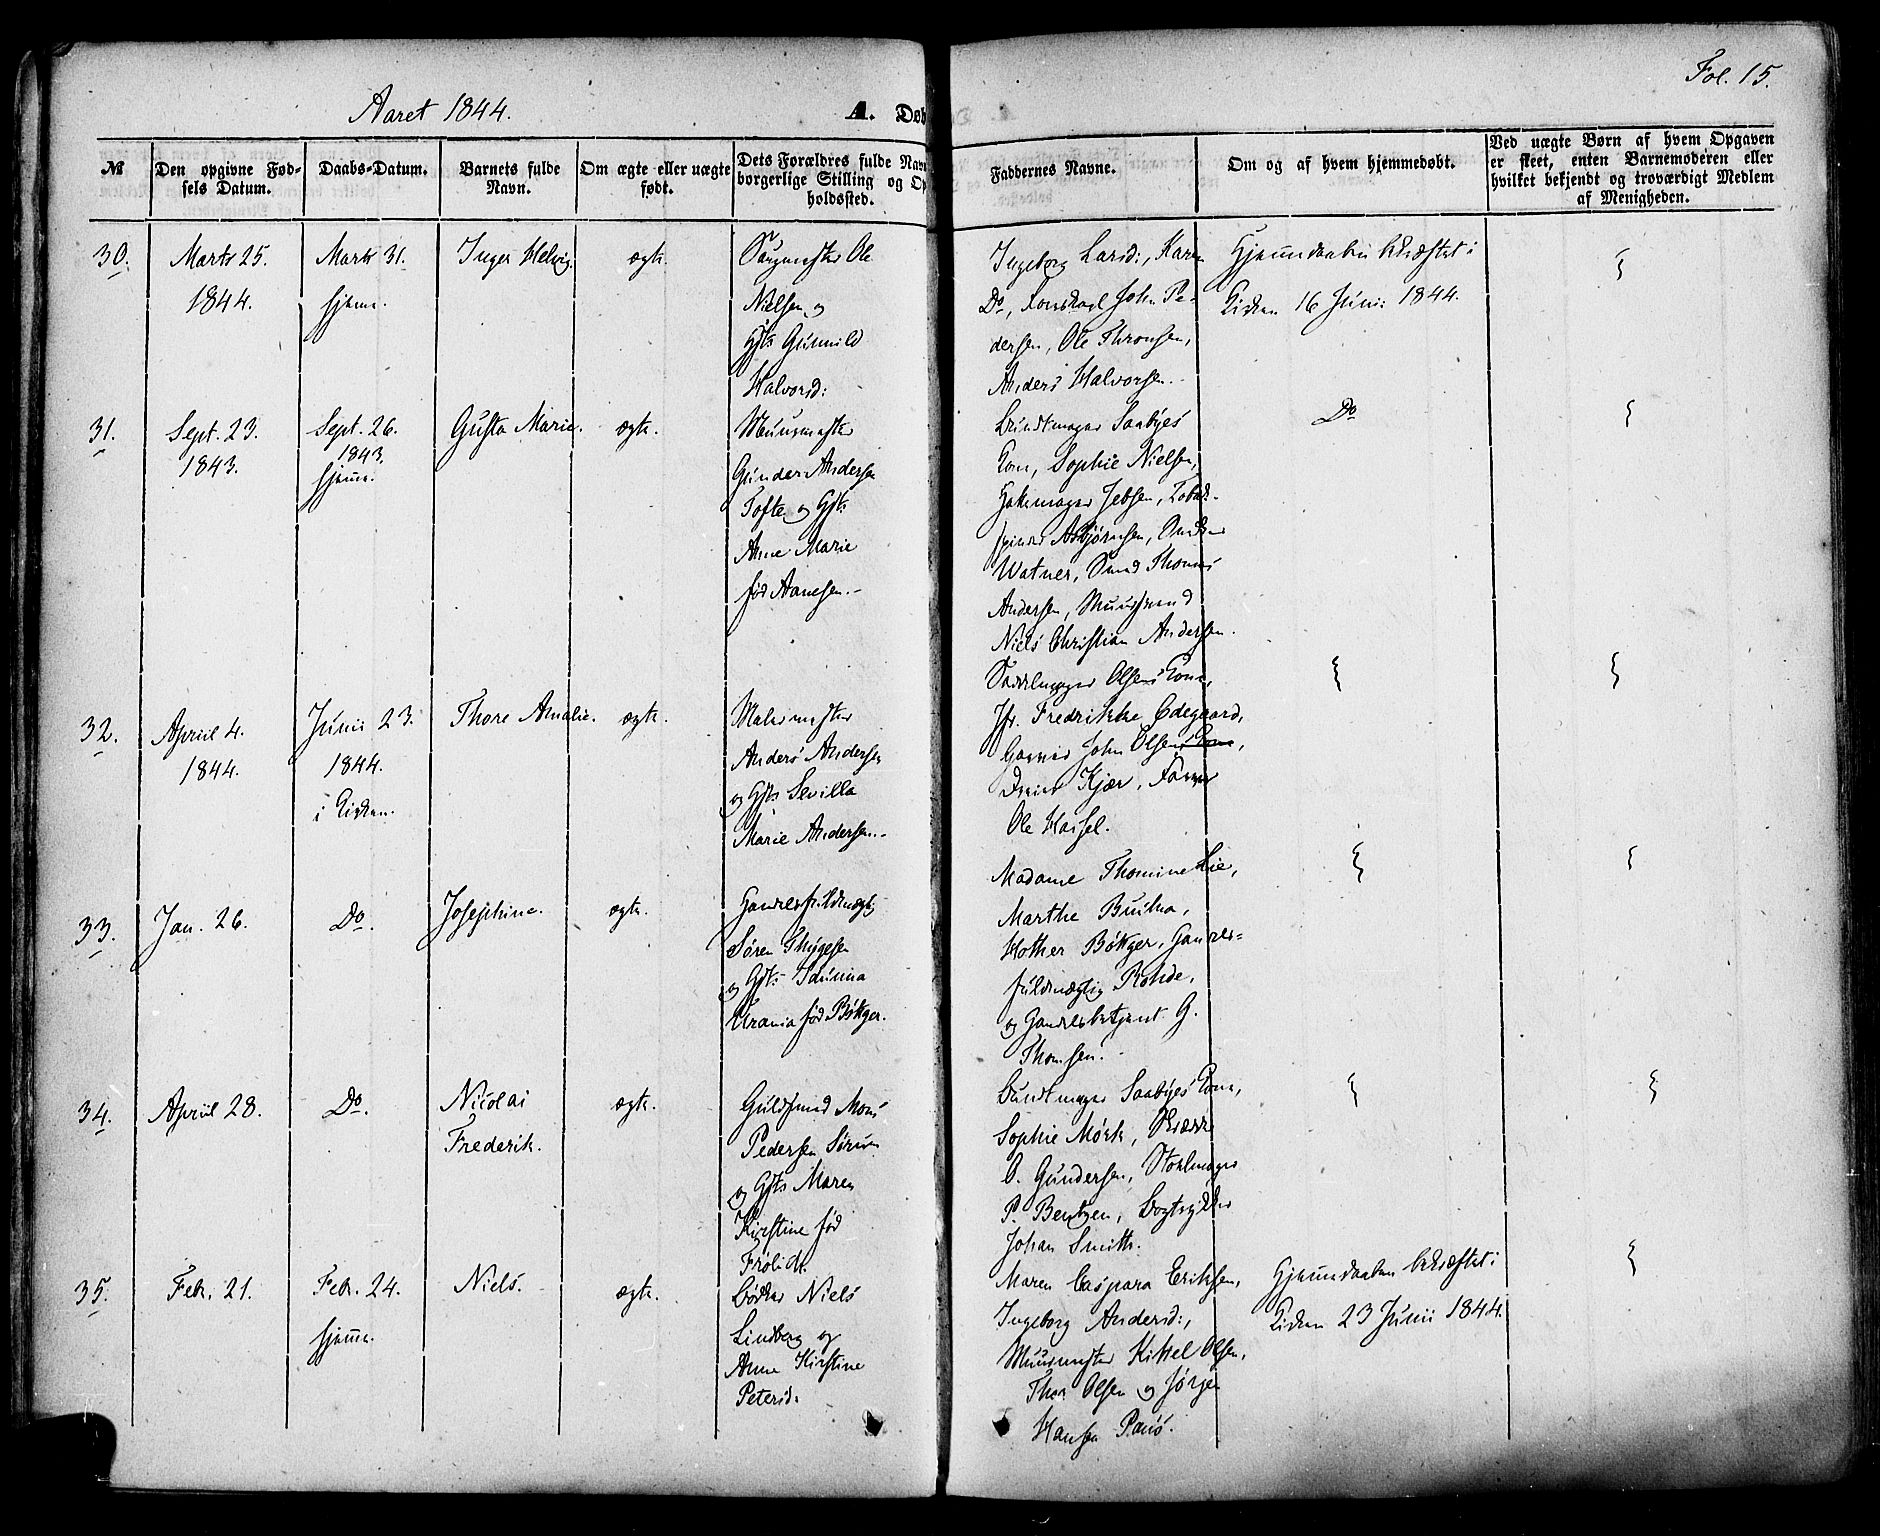 Aaret 1844.
A. Døb
Fol. 15.
№
Den opgivne Fød-
sels Datum.
Daabs-Datum.
Barnets fulde
Navn.
Om ægte eller uægte
født.
Dets Forældres fulde Navn
borgerlige Stilling og Op
holdssted.
Faddernes Navne.
Om og af hvem hjemmedøbt.
Ved uægte Børn af hvem Opgaven
er skeet, enten Barnemoderen eller
hvilket bekjendt og troværdigt Medlem
af Menigheden.
30.
Marts 25.
1844.
Marts 31.
hjeme.
Inger Helvig.
ægte.
Ole
Nielsen og
Gunnild
Halvorsd:
Ingeborg Larsd:, Karen
Do, John Pe-
dersen, Ole Thronsen,
Anders Halvorsen.
Hjemmedaaben bekræftet i
Kirken 16 Juni 1844.
31.
Sept. 23.
1843.
Sept. 26.
1843.
hjeme.
Gusta Marie.
ægte.
Muurmester
Gunder Andersen
Tofte og Hst:
Anne Marie
fød Aanesen.
Bundtmager Saabyes
Kone, Sophie Nielsen,
Jebsen, Tobak-
spinder Asbjørnsen, Snedker
Watner, Smed Thomas
Andersen, Muursvend
Niels Christian Andersen.
Do
32.
April 4.
1844.
Junii 23.
1844.
i Kirken.
Thore Amalie.
ægte.
Malermester
Anders Andersen
og Sevilla
Marie Andersen.
Sadelmager Olsens Kone,
Jfr. Fredrikke Ødegaard,
Garver John Olsens Kone,
Dreier Kjær, Farver
Ole Hassel.
33.
Jan. 26.
Do.
Josephine.
ægte.
Handelsfuldmægtig
Søren Thygesen
og Idunna
Urania fød Bøtger.
Madame Thomine Lie,
Marthe
Hother Bøtger, Handels-
fuldmægtig Rohde,
og Handelsbetjent G.
Thomsen.
34.
April 28.
Do.
Nicolai
Frederik.
ægte.
Guldsmed Mons
Pedersen Sørum
og Maren
Kirstine fød
Frølich.
Bundtmager Saabyes Kone,
Sophie Mørk,
O. Gundersen, Stolmager
P. Bentzen, Bogtrykker
Johan Smith.
35.
Febr. 21.
Febr. 24.
hjeme.
Niels.
ægte.
Bødker Niels
Lindberg og
Anne Kirstine
Petersd.
Maren Caspara Eriksen,
Ingeborg Andersd:,
Muurmester Kittel Olsen,
Thor Olsen og Jørgen
Hansen
Hjemmedaaben bekræftet i
Kirken 23 Junii 1844.